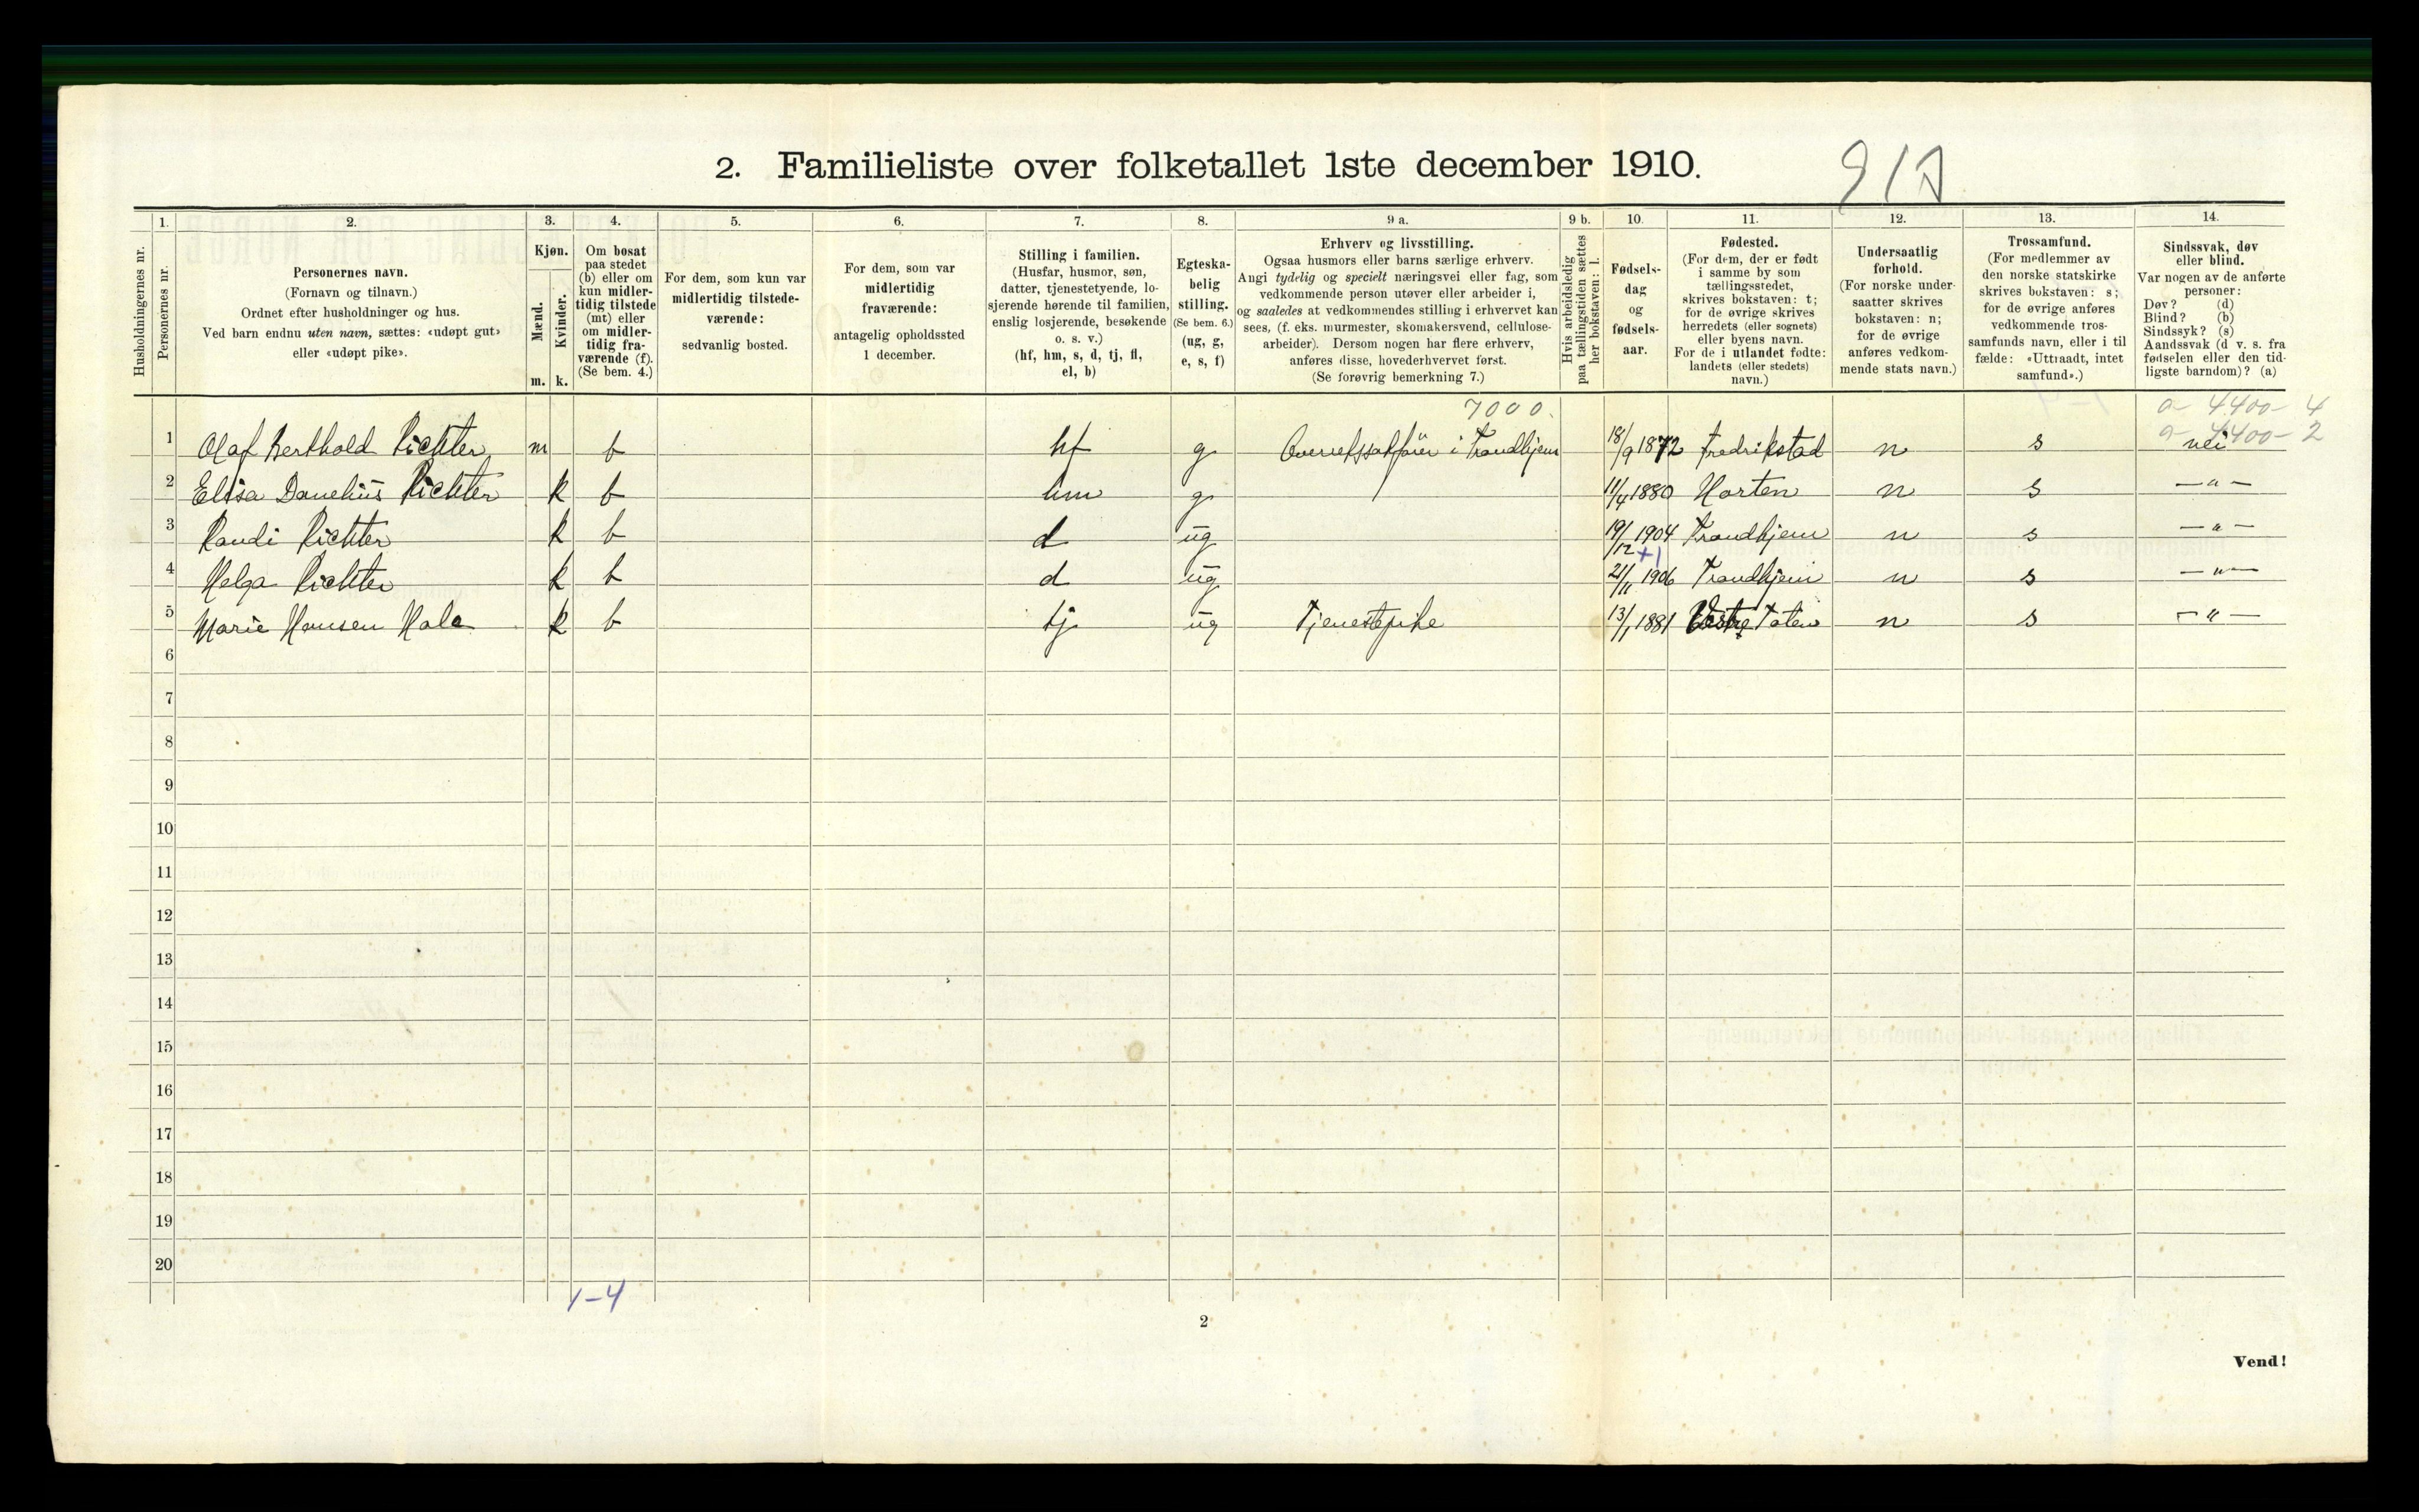 2. Familieliste over folketallet 1ste december 1910.
1. 2. 3. 4. 5. 6. 7. 8. 9 a. 9 b. 10. 11. 12. 13. 14.
Husholdningernes nr.
Personernes nr.
Personernes navn.
(Fornavn og tilnavn.)
Ordnet efter husholdninger og hus.
Ved barn endnu uten navn, sættes: «udøpt gut»
eller «udøpt pike».
Kjøn.
Mænd.
Kvinder.
m. k.
Om bosat
paa stedet
(b) eller om
kun midler-
tidig tilstede
(mt) eller
om midler-
tidig fra-
værende (f).
(Se bem. 4.)
For dem, som kun var
midlertidig tilstede-
værende:
sedvanlig bosted.
For dem, som var
midlertidig
fraværende:
antagelig opholdssted
1 december.
Stilling i familien.
(Husfar, husmor, søn,
datter, tjenestetyende, lo-
sjerende hørende til familien,
enslig losjerende, besøkende
o. s. v.)
(hf, hm, s, d, tj, fl,
el, b)
Egteska-
belig
stilling.
(Se bem. 6.)
(ug, g,
e, s, f)
Erhverv og livsstilling.
Ogsaa husmors eller barns særlige erhverv.
Angi tydelig og specielt næringsvei eller fag, som
vedkommende person utøver eller arbeider i,
og saaledes at vedkommendes stilling i erhvervet kan
sees, (f. eks. murmester, skomakersvend, cellulose-
arbeider). Dersom nogen har flere erhverv,
anføres disse, hovederhvervet først.
(Se forøvrig bemerkning 7.)
Hvis arbeidsledig
paa tællingstiden sættes
her bokstaven: l.
Fødsels-
dag
og
fødsels-
aar.
Fødested.
(For dem, der er født
i samme by som
tællingsstedet,
skrives bokstaven: t;
for de øvrige skrives
herredets (eller sognets)
eller byens navn.
For de i utlandet fødte:
landets (eller stedets)
navn.)
Undersaatlig
forhold.
(For norske under-
saatter skrives
bokstaven: n;
for de øvrige
anføres vedkom-
mende stats navn.)
Trossamfund.
(For medlemmer av
den norske statskirke
skrives bokstaven: s;
for de øvrige anføres
vedkommende tros-
samfunds navn, eller i til
fælde: «Uttraadt, intet
samfund».)
Sindssvak, døv
eller blind.
Var nogen av de anførte
personer:
Døv? (d)
Blind? (b)
Sindssyk? (s)
Aandssvak (d v. s. fra
fødselen eller den tid-
ligste barndom)? (a)
7000. 4400-4
4400-2
1 Olaf Berthold Richter m b hf g Overretssakfører i Trondhjem 18/9 1872 Fredrikstad n s nei
2 Elisa Danelius Richter k b hm g 11/4 1880 Horten n s —"—
3 Randi Richter k b d ug 19/12 1904 Trondhjem n s —"—
+1
4 Helga Richter k b d ug 21/11 1906 Trondhjem n s —"—
5 Marie Hansen Hole k b tj ug Tjenestepike 13/1 1881 Vestre Toten n s —"—
6
7
8
9
10
11
12
13
14
15
16
17
18
19
20
1-4
2
Vend!